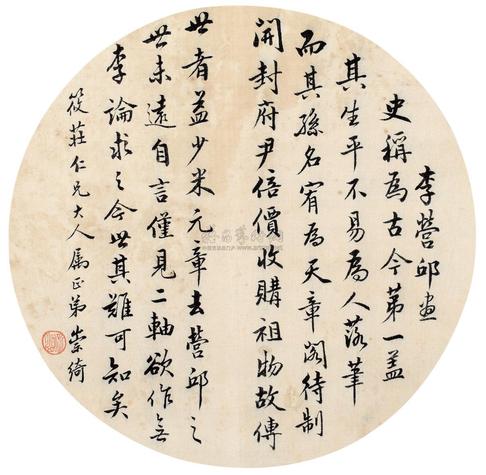 李營邱畫
史稱為古今第一蓋
其生平不易為人落筆
而其孫名宥為天章閣待制
開封府尹倍價收購祖物故傳
世者益少米元章去營邱之
世未遠自言僅見二軸欲作無
李論求之今世其難可知矣
筱莊仁兄大人属正弟崇綺